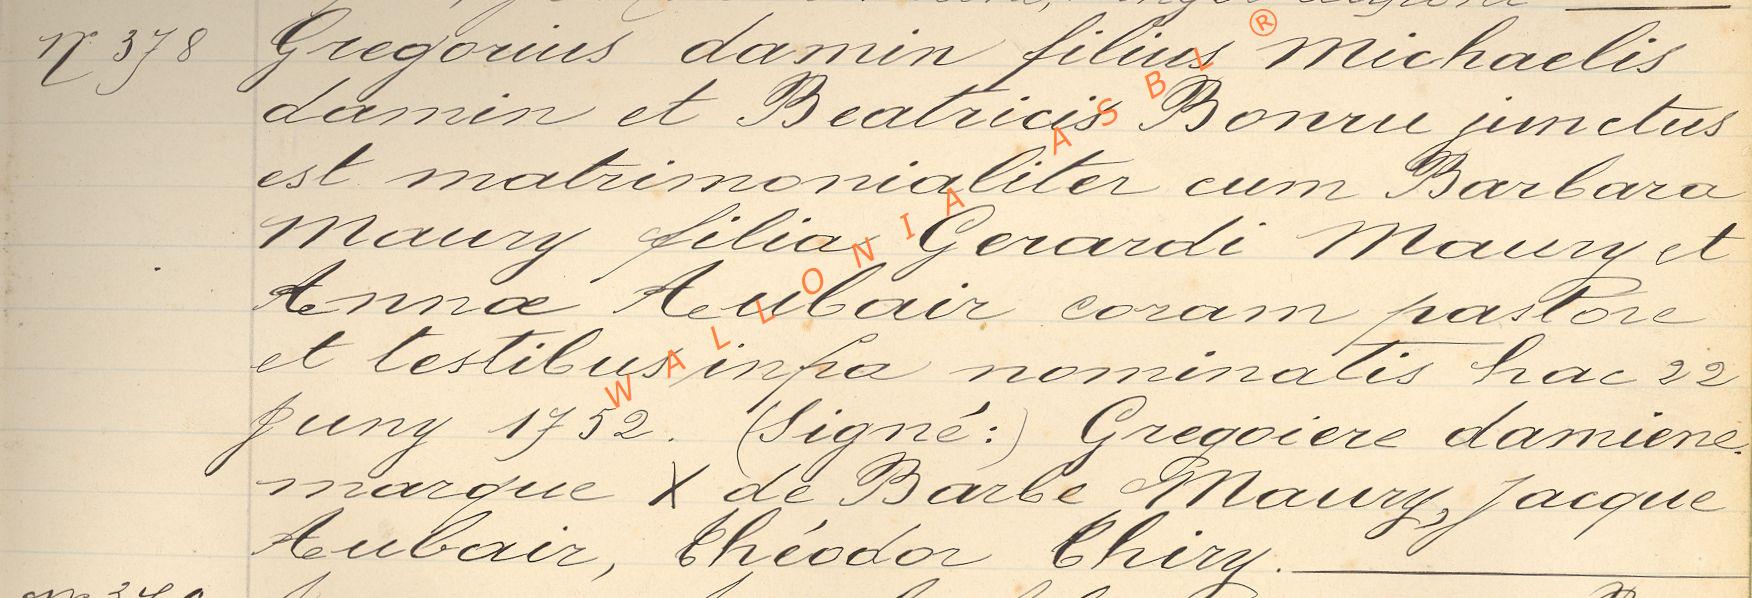 N° 378 Gregorius damin filius Michaelis
damin et Beatricis Bonru junctus
est matrimonialiter cum Barbara
Maury filia Gerardi Maury et
Annæ Aubair coram pastore
et testibus infra nominatis hac 22
Juny 1752. (Signé:) Gregoiere damiene.
marque X de Barbe Maury, Jacque
Aubair, Théodor Thiry.
WALLONIA ASBL ®